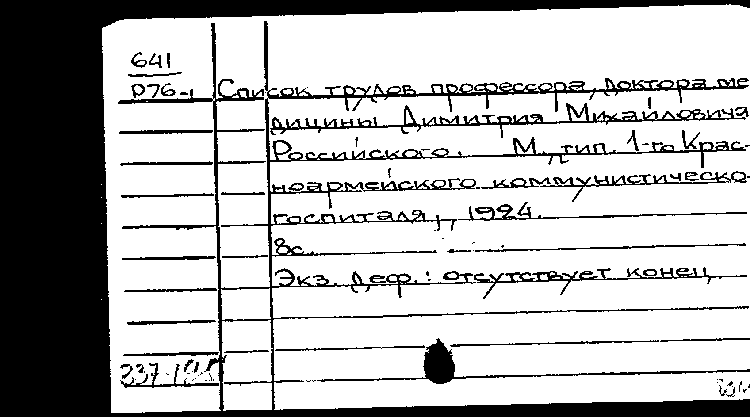 641
Р76-1 Список трудов профессора, доктора ме
дицины Димитрия Михайловича
Российского. М., тип. 1-го Крас-
ноармейского коммунистическо-
госпиталя, 1924.
8с.
Экз. деф.: отсутствует конец.